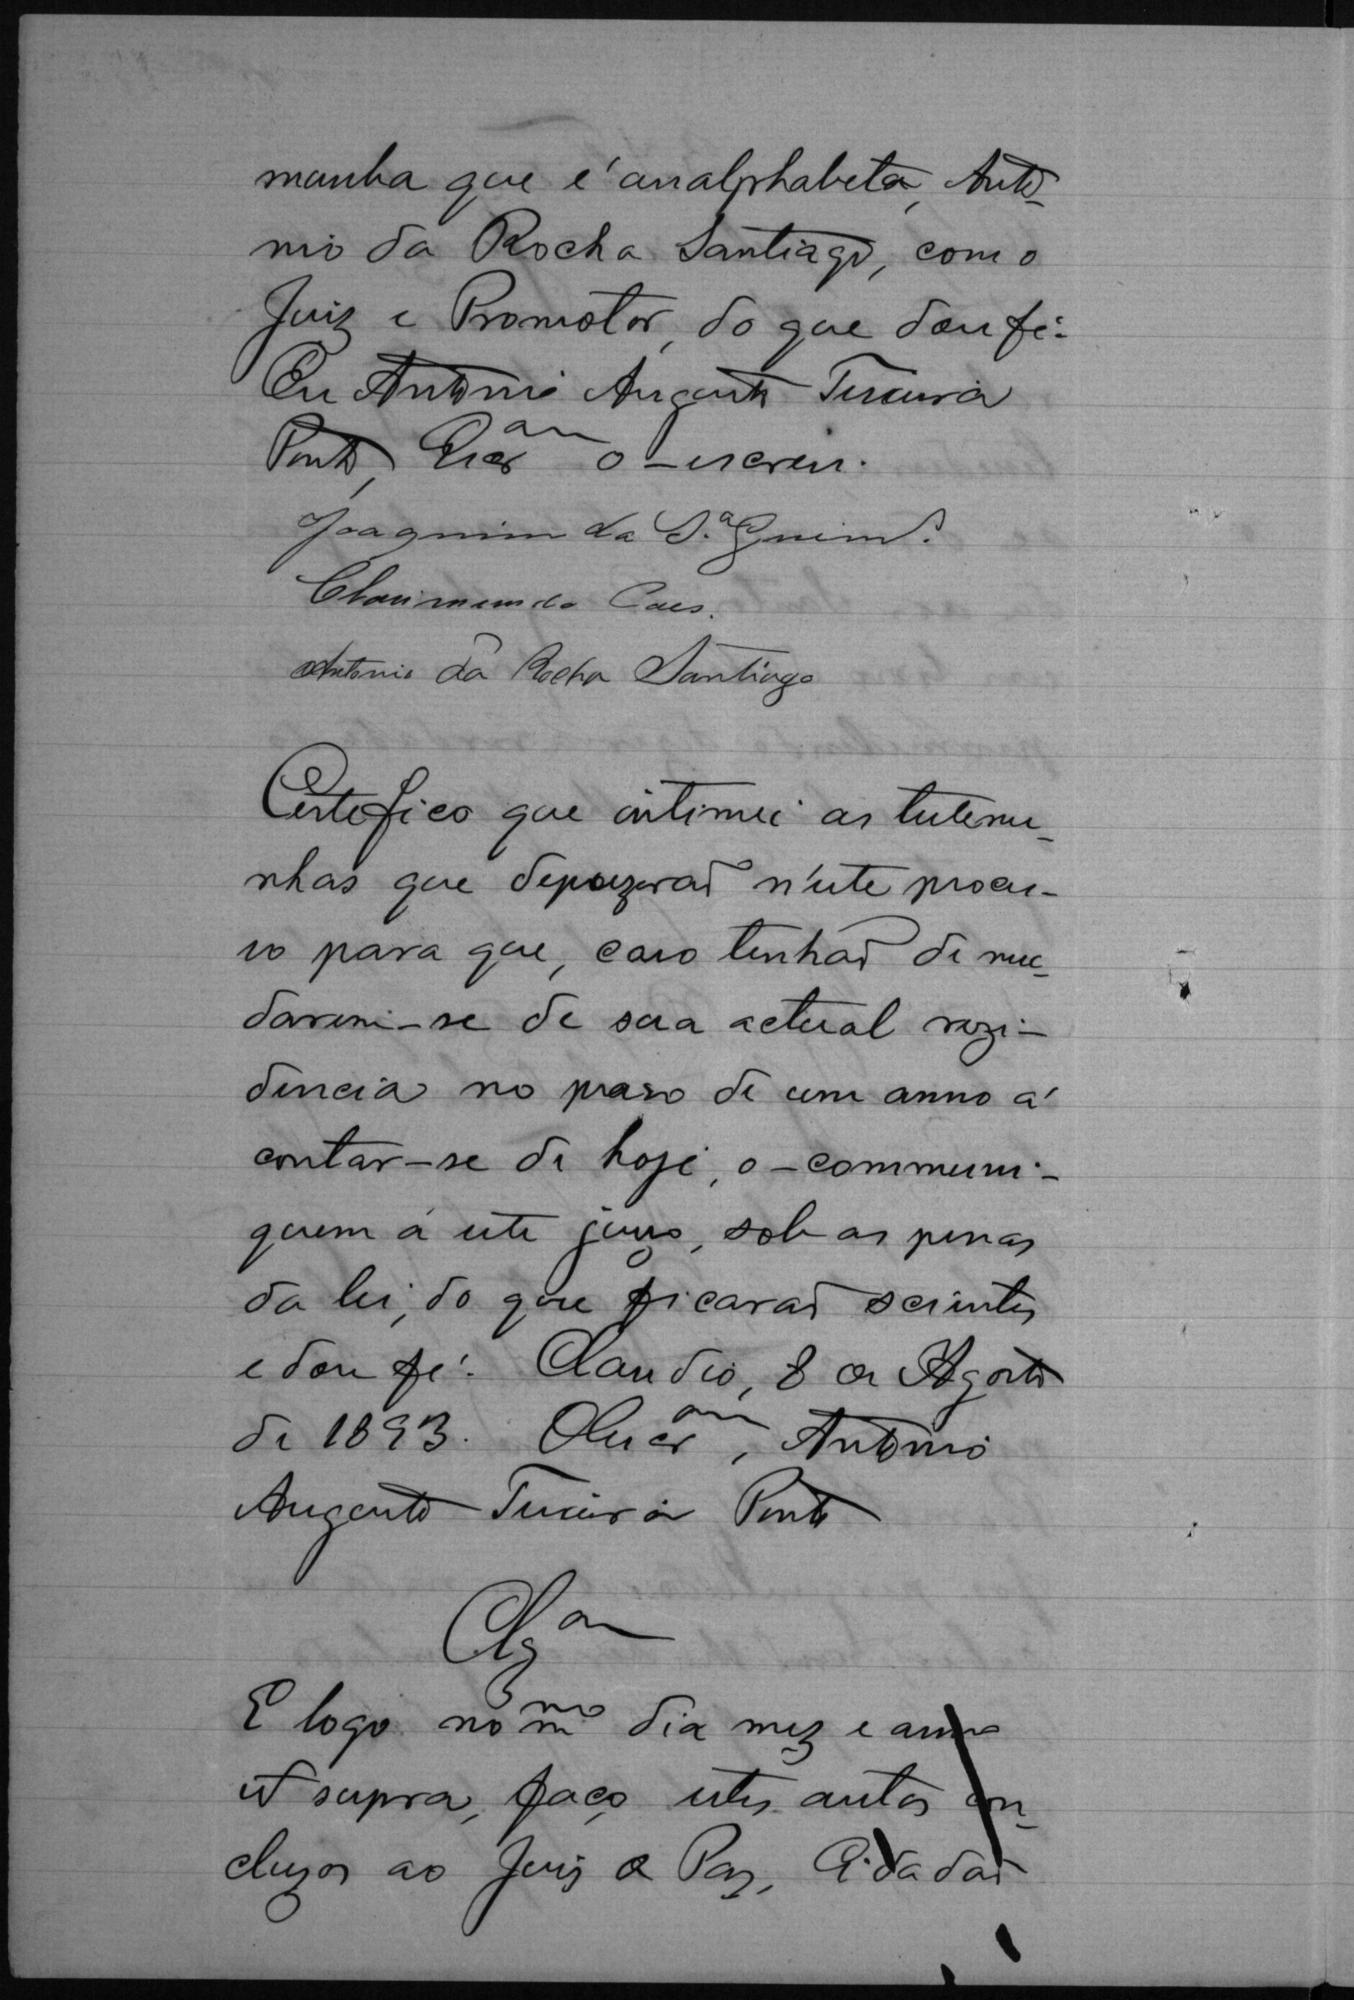 munha que é analphabeta, Anto-
nio da Rocha Santiago, como
Juiz e Promotor, do que dou fé.
Eu Antonio Augusto Teixeira
Pinto, Escr.am o-escrevi.
Joaquim da S.a Guim.s
Antonio da Rocha Santiago
Certefico que intimei as testemu-
nhas que depuzerað n'este proces-
so para que, caso tenhað de mu-
darem-se de sua actual rezi-
dencia no praso de um anno á
contar-se de hoje, o-communi-
quem á este juizo, sob as penas
da lei, do que ficarað scientes
e dou fé. Claudio, 8 de Agosto
de 1893. O Escr.am, Antonio
Augusto Teixeira Pinto
Clz.am
E logo no m.mo dia mez e anno
ut supra, faço estes autos con-
cluzos ao Juiz de Paz, Cidadað